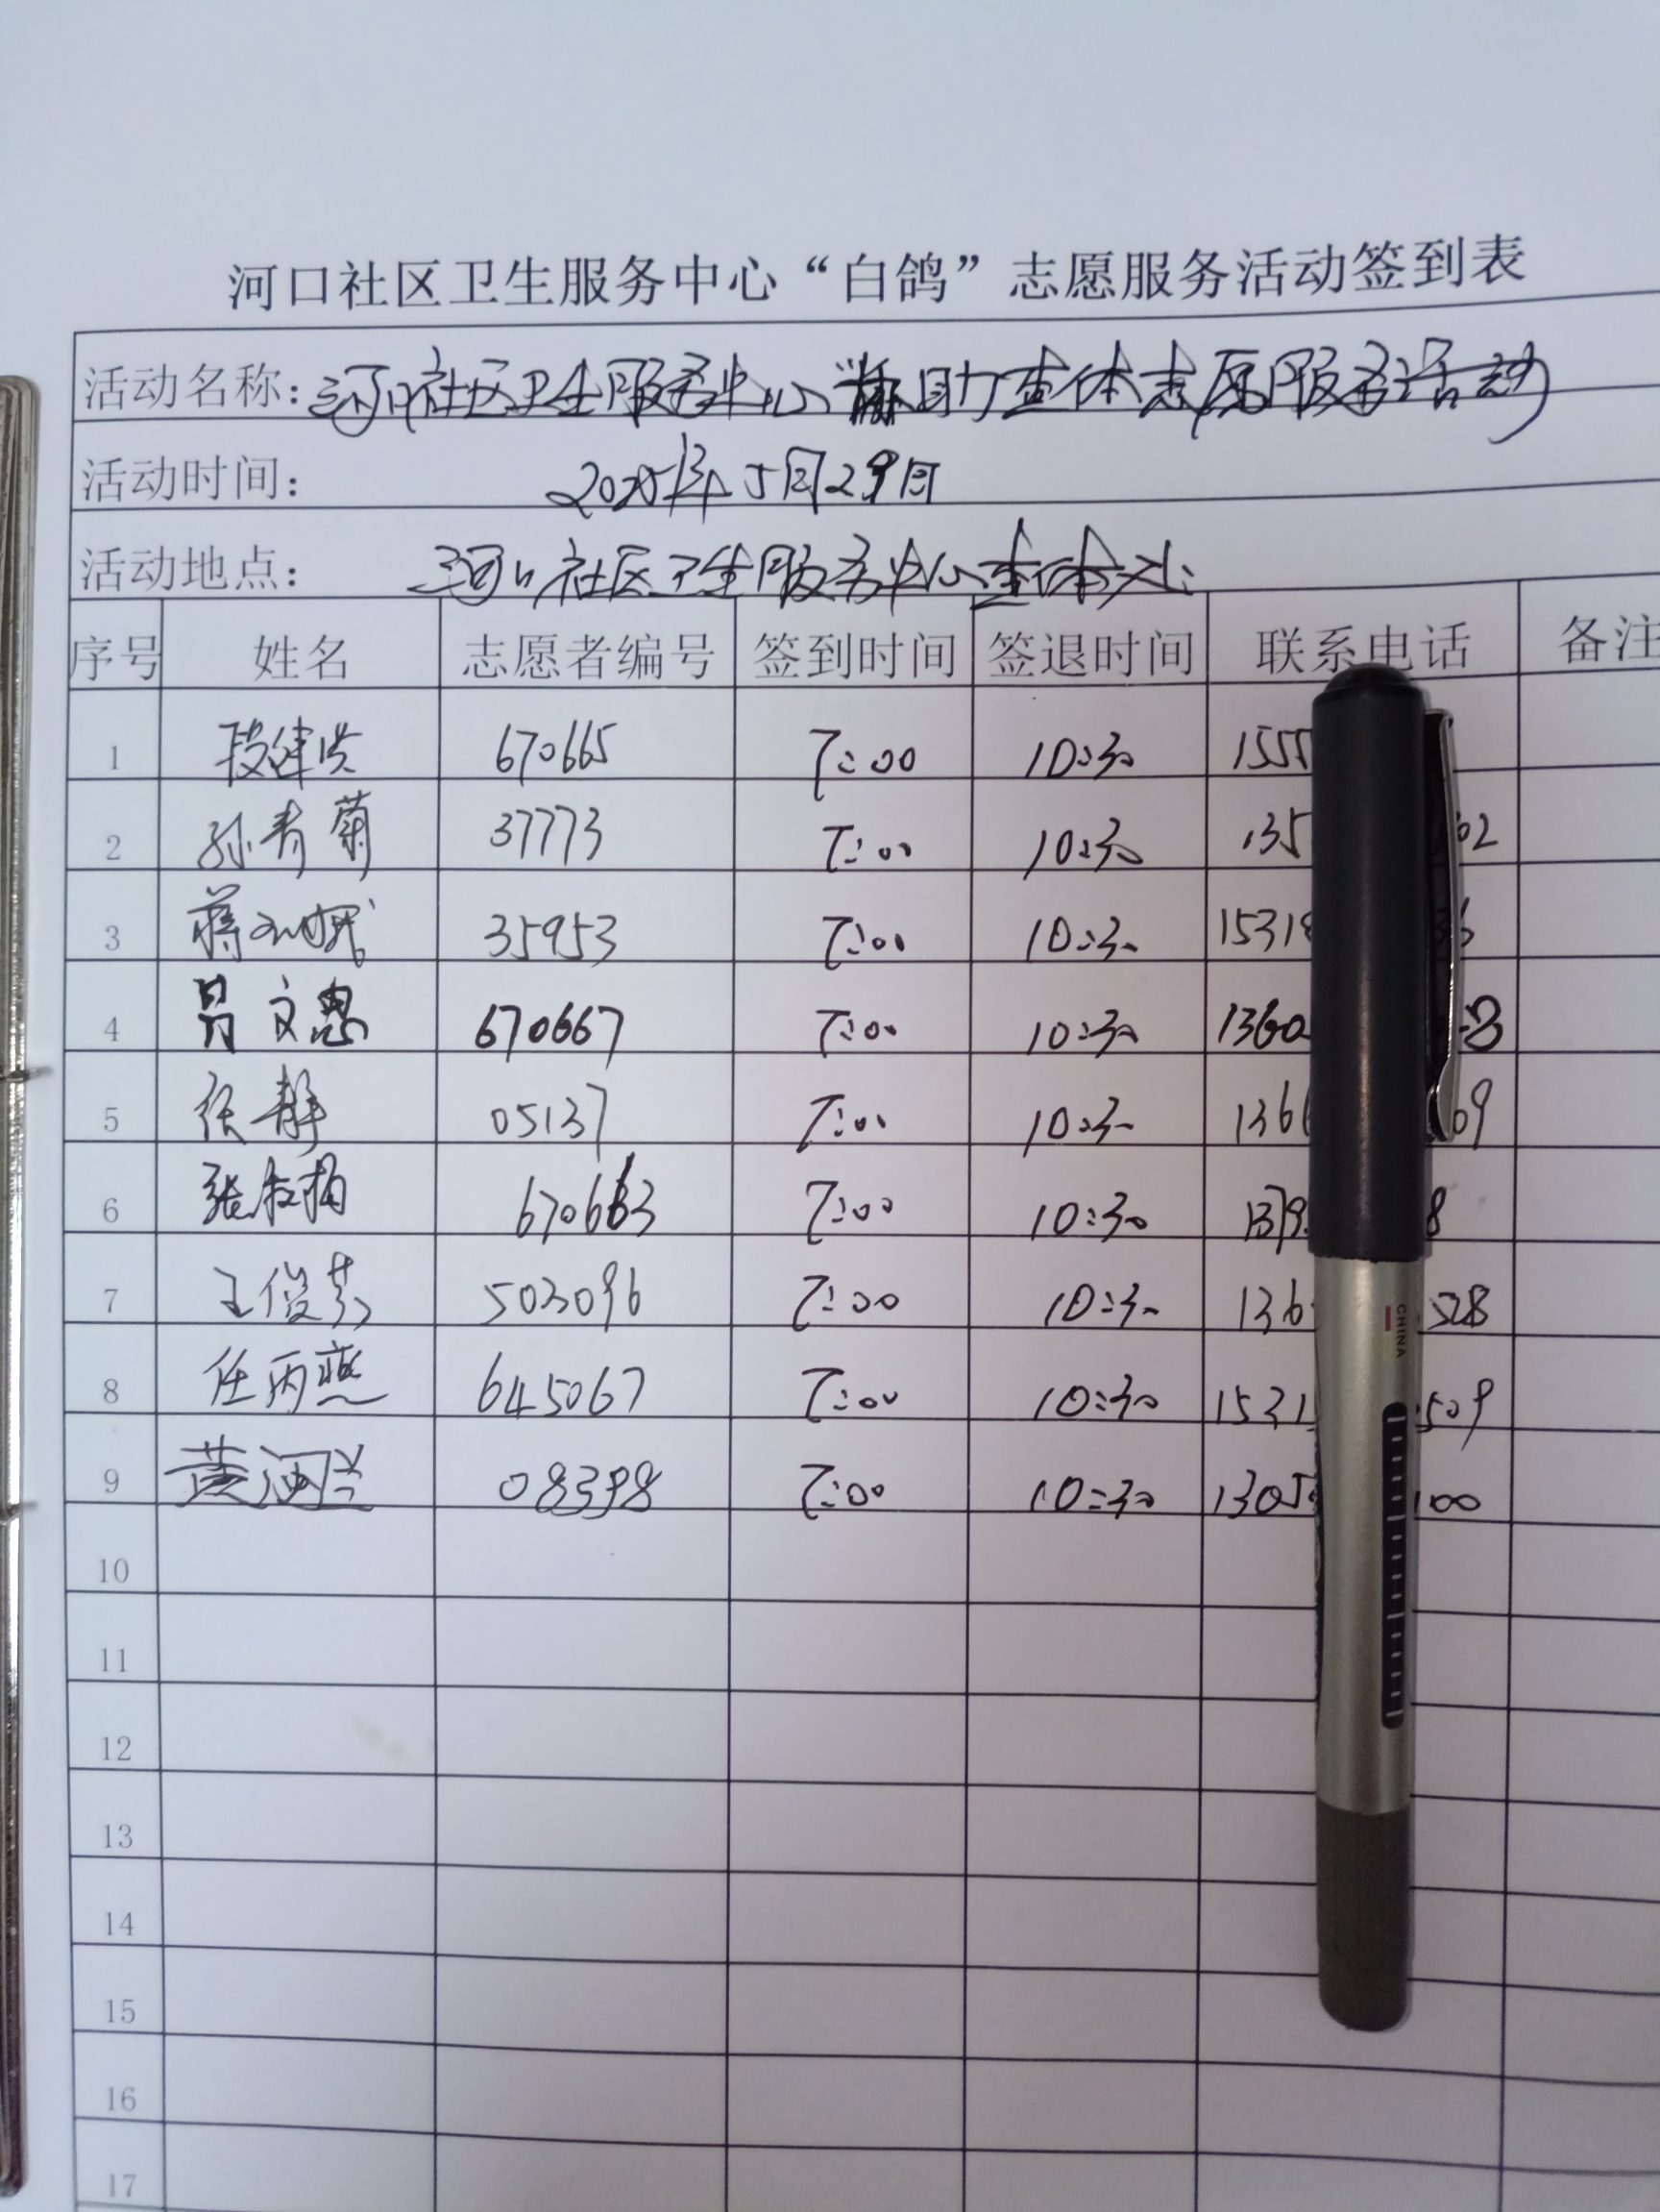 河口社区卫生服务中心“白鸽”志愿服务活动签到表
活动名称：河口社区卫生服务中心 助查体志愿服务活动
活动时间： 2025年5月29日
活动地点： 河口社区卫生服务中心查体处
序号 姓名 志愿者编号 签到时间 签退时间 联系电话 备注
1 段建洪 670665 7:00 10:30 1555
2 孙青菊 37773 7:00 10:30 135 62
3 蒋 35953 7:00 10:30 1531
4 文惠 670667 7:00 10:30 1360
5 任静 05137 7:00 10:30 136 09
6 张 670663 7:00 10:30 1379 8
7 王俊芳 503096 7:00 10:30 136 528
8 任丙燕 645067 7:00 10:30 1531 509
9 黄河兰 08398 7:00 10:30 1305 100
10
11
12
13
14
15
16
17
CHINA